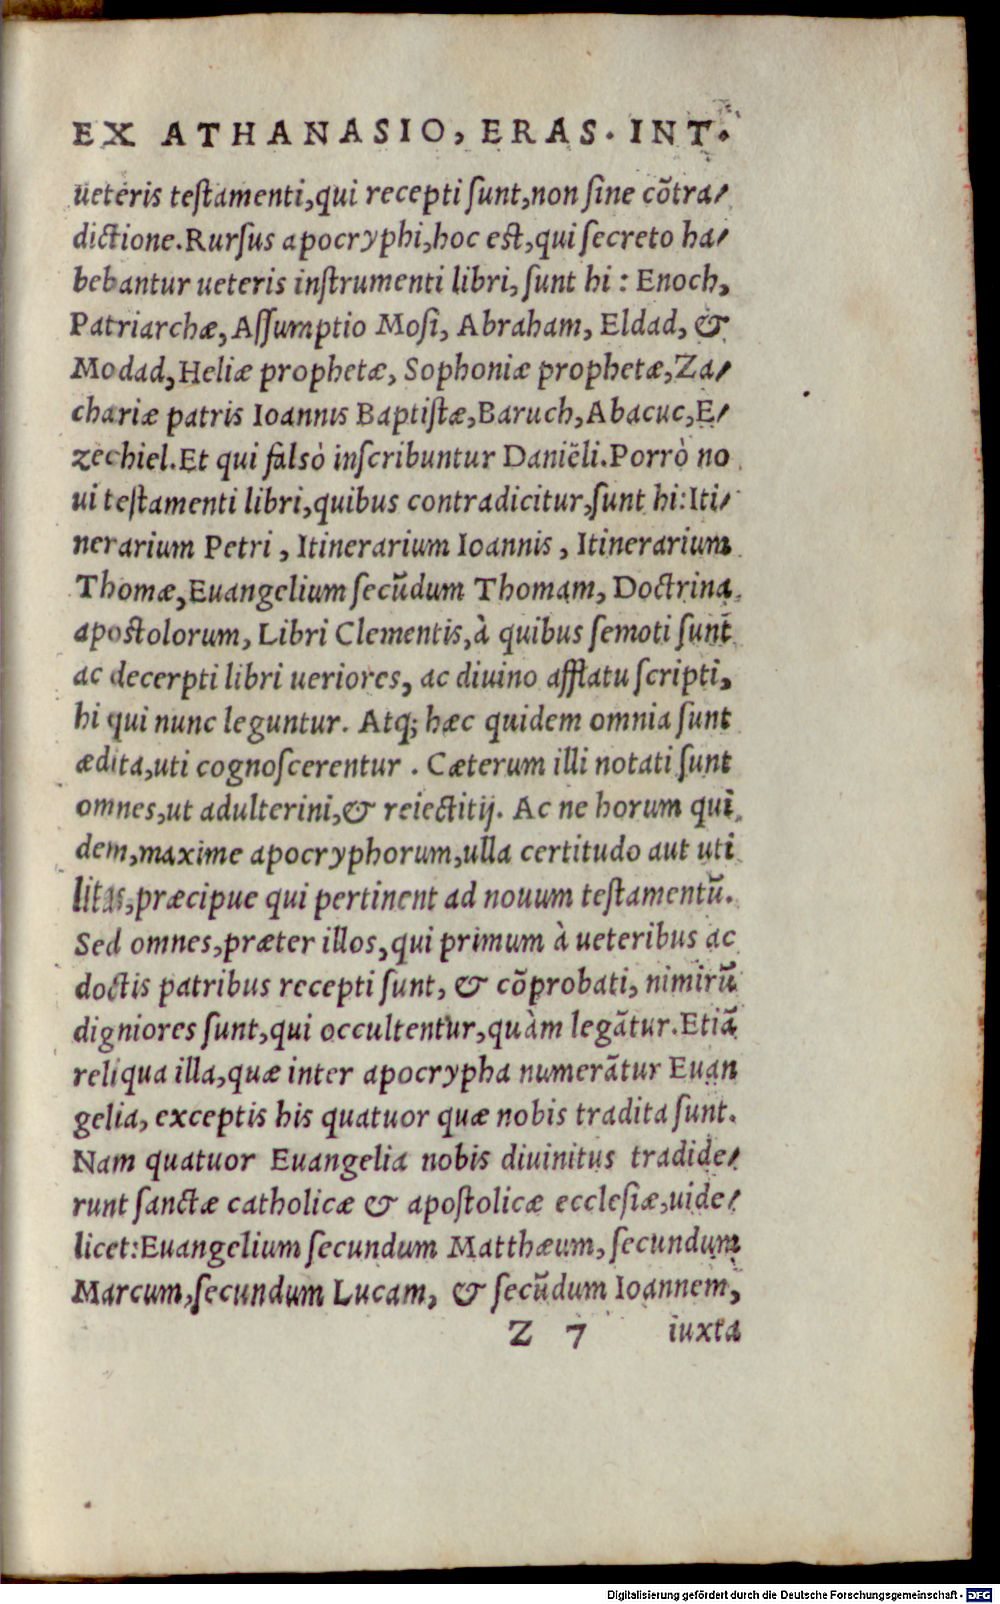 EX ATHANASIO, ERAS. INT.
ueteris testamenti,qui recepti sunt,non sine cõtra/
dictione.Rursus apocryphi,hoc est,qui secreto ha/
bebantur ueteris instrumenti libri, sunt hi : Enoch,
Patriarchæ, Assumptio Mosi, Abraham, Eldad, &
Modad,Heliæ prophetæ, Sophoniæ prophetæ,Za/
chariæ patris Ioannis Baptistæ,Baruch,Abacuc,E/
zechiel.Et qui falsò inscribuntur Daniëli.Porrò no
ui testamenti libri,quibus contradicitur,sunt hi:Iti/
nerarium Petri , Itinerarium Ioannis , Itinerarium
Thomæ,Euangelium secũdum Thomam, Doctrina
apostolorum, Libri Clementis,à quibus semoti sunt
ac decerpti libri ueriores, ac diuino afflatu scripti,
hi qui nunc leguntur. Atq; hæc quidem omnia sunt
ædita,uti cognoscerentur . Cæterum illi notati sunt
omnes,ut adulterini,& reiectitij. Ac ne horum qui
dem,maxime apocryphorum,ulla certitudo aut uti
litas,præcipue qui pertinent ad nouum testamentũ.
Sed omnes,præter illos,qui primum à ueteribus ac
doctis patribus recepti sunt, & cõprobati, nimirũ
digniores sunt,qui occultentur,quàm legãtur.Etiã
reliqua illa,quæ inter apocrypha numerãtur Euan
gelia, exceptis his quatuor quæ nobis tradita sunt.
Nam quatuor Euangelia nobis diuinitus tradide/
runt sanctæ catholicæ & apostolicæ ecclesiæ,uide/
licet:Euangelium secundum Matthæum, secundum
Marcum,secundum Lucam, & secũdum Ioannem,
Z 7 iuxta
Digitalisierung gefördert durch die Deutsche Forschungsgemeinschaft - DFG